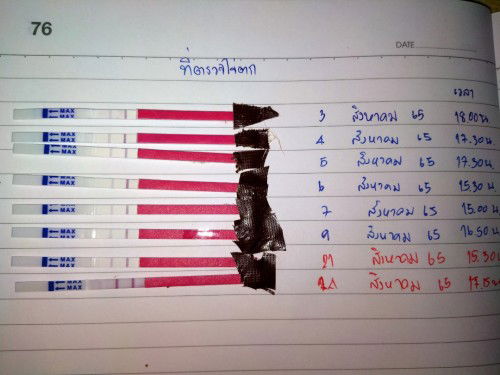 76
DATE
ที่ตรวจไข่ตก
เวลา
MAX MAX 3 สิงหาคม 65 18.00 น
MAX MAX 4 สิงหาคม 65 17.30 น.
MAX MAX 5 สิงหาคม 65 17.30 น.
MAX MAX 6 สิงหาคม 65 15.30 น
MAX MAX 7 สิงหาคม 65 15.00 น.
MAX MAX 9 สิงหาคม 65 16.50 น.
MAX MAX สิงหาคม 65 15.30
MAX MAX สิงหาคม 65